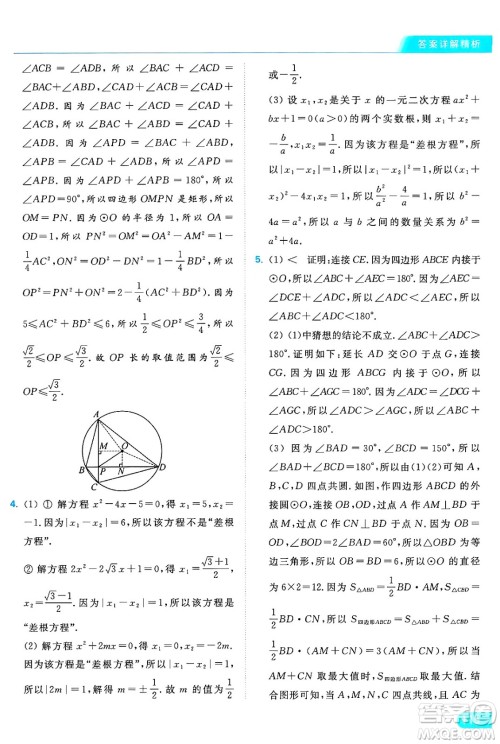 答案详解精析
∠ACB = ∠ADB, 所以 ∠BAC + ∠ACB =
∠BAD + ∠ADB. 因为 ∠APD = ∠BAC +
∠CAD + ∠ADB, 所以 ∠APD = ∠BAC +
∠CAD + ∠ACB. 因为 ∠BAC + ∠CAD =
∠BAD, 所以 ∠APD = ∠BAD + ∠ACB =
∠BAD + ∠ADB. 所以 ∠APD = ∠APB. 所以
∠APD=90°, 所以四边形 OMPN 是矩形, 所以
OM=PN. 因为 ⊙O 的半径为 1, 所以 OA=
OD=1, 所以 PN²=OM²=OA²-AM²=1-
1/4 AC², ON²=OD²-DN²=1-1/4 BD², 所以
OP²=PN²+ON²=2-1/4(AC²+BD²). 因为
5≤AC²+BD²≤6, 所以 1/2≤OP²≤3/4, 所以
√2/2≤OP≤√3/2. 故 OP 长的取值范围为 √2/2≤
OP≤√3/2.
A
M
O
B
P
N
D
C
4. (1) ① 解方程 x²-4x-5=0, 得 x₁=5, x₂=
-1. 因为|x₁-x₂|=6, 所以该方程不是“差根
方程”.
② 解方程 2x²-2√3x+1=0, 得 x₁=(√3+1)/2,
x₂=(√3-1)/2. 因为|x₁-x₂|=1, 所以该方程是
“差根方程”.
(2) 解方程 x²+2mx=0, 得 x₁=0, x₂=
-2m. 因为该方程是“差根方程”, 所以|x₁-
x₂|=|2m|=1, 解得 m=±1/2. 故 m 的值为 1/2
或-1/2.
(3) 设 x₁, x₂ 是关于 x 的一元二次方程 ax²+
bx+1=0 (a>0) 的两个实数根, 则 x₁+x₂=
-b/a, x₁x₂=1/a. 因为该方程是“差根方程”, 所
以|x₁-x₂|=1, 所以(x₁-x₂)²=1, 所以
(x₁+x₂)²-4x₁x₂=1, 即 b²/a²-4/a=1, 所以 b²-
4a=a². 故 a 与 b 之间的数量关系为 b²=
a²+4a.
5. (1) < 证明: 连接 CE. 因为四边形 ABCE 内接于
⊙O, 所以∠ABC+∠AEC=180°. 因为 ∠AEC=
∠DCE+∠ADC, 所以 ∠AEC>∠ADC, 所以
∠ABC+∠ADC<180°.
(2) (1)中猜想的结论不成立. ∠ABC+∠ADC>
180°. 证明如下: 延长 AD 交⊙O 于点 G, 连接
CG. 因为四边形 ABCG 内接于⊙O, 所以
∠ABC+∠AGC=180°. 因为 ∠ADC=∠DCG+
∠AGC, 所以 ∠ADC>∠AGC, 所以∠ABC+
∠ADC>180°.
(3) 因为 ∠BAD=30°, ∠BCD=150°, 所以
∠BAD+∠BCD=180°. 由(1)(2)可得, 点 A,
B, C, D 四点共圆. 作四边形 ABCD 的外
接圆⊙O, 连接 OB, OD, 过点 A 作 AM⊥BD
于点 M, 过点 C 作 CN⊥BD 于点 N, 所以
∠BOD=2∠BAD=60°, 所以△OBD 为等
边三角形, 所以⊙O 的半径为 6, 所以⊙O 的直径
为 6×2=12. 因为 S△ABD=1/2 BD·AM, S△CBD=
1/2 BD·CN, 所以 S四边形ABCD=S△ABD+S△CBD=
1/2 BD·(AM+CN)=3(AM+CN), 所以当
AM+CN 取最大值时, S四边形ABCD 取最大值.
结合图形可知, 当 A, O, C 四点共线, 且 AC 为